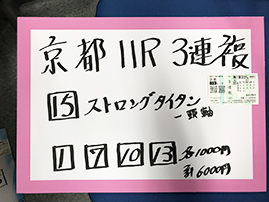 京都11R 3連複
15 ストロングタイタン
一頭軸
1 7 10 13 各1000円
計6000円